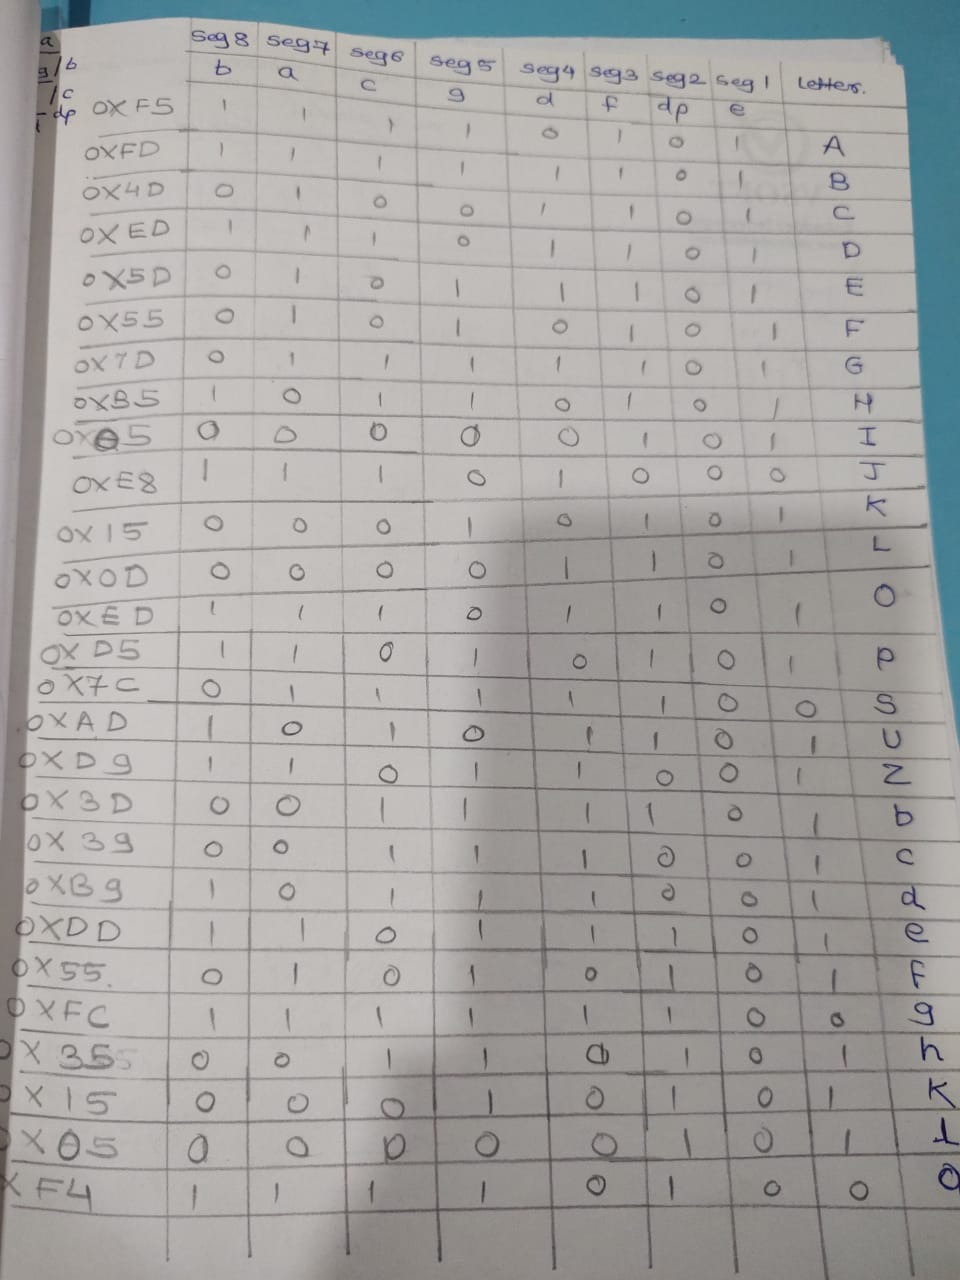 a
g/b
/c
dp
seg8 seg7 seg6 seg5 seg4 seg3 seg2 seg1 Letters.
b a c g d f dp e
0XF5 1 1 1 1 0 1 0 1 A
0XFD 1 1 1 1 1 1 0 1 B
0X4D 0 1 0 0 1 1 0 1 C
0XED 1 1 1 0 1 1 0 1 D
0X5D 0 1 0 1 1 1 0 1 E
0X55 0 1 0 1 0 1 0 1 F
0X7D 0 1 1 1 1 1 0 1 G
0XB5 1 0 1 1 0 1 0 1 H
0X05 0 0 0 0 0 1 0 1 I
0XE8 1 1 1 0 1 0 0 0 J
0X15 0 0 0 1 0 1 0 1 K
0X0D 0 0 0 0 1 1 0 1 L
0XED 1 1 1 0 1 1 0 1 O
0XD5 1 1 0 1 0 1 0 1 P
0X7C 0 1 1 1 1 1 0 0 S
0XAD 1 0 1 0 1 1 0 1 U
0XD9 1 1 0 1 1 0 0 1 Z
0X3D 0 0 1 1 1 1 0 1 b
0X39 0 0 1 1 1 0 0 1 c
0XB9 1 0 1 1 1 0 0 1 d
0XDD 1 1 0 1 1 1 0 1 e
0X55. 0 1 0 1 0 1 0 1 F
0XFC 1 1 1 1 1 1 0 0 g
0X35 0 0 1 1 0 1 0 1 h
0X15 0 0 0 1 0 1 0 1 K
0X05 0 0 0 0 0 1 0 1
XF4 1 1 1 1 0 1 0 0